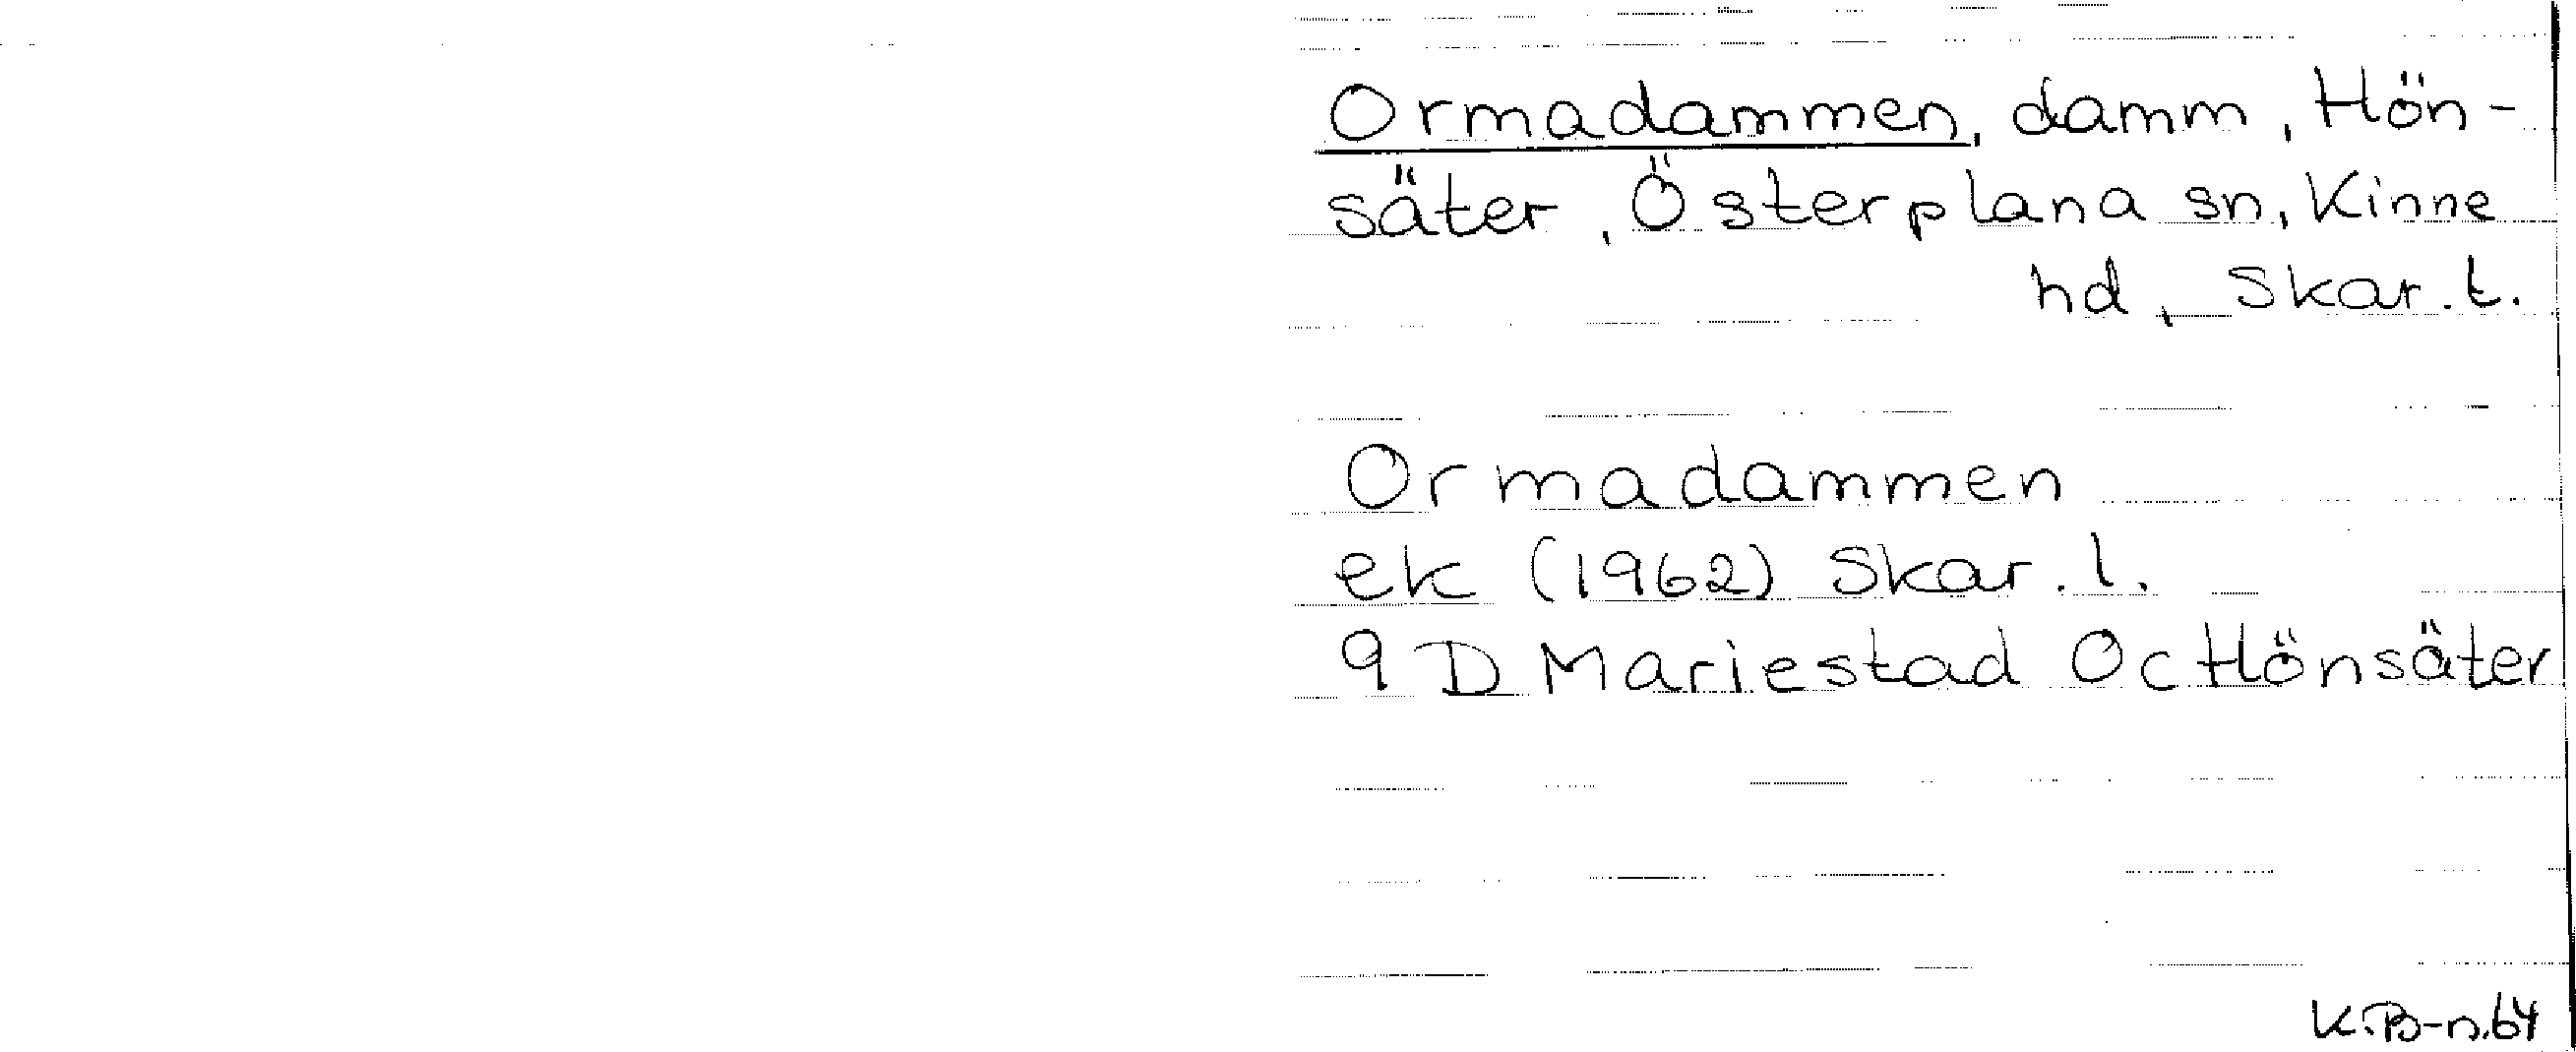 Ormadammen, damm, Hön-
säter, Österplana sn, Kinne
hd, Skar. l.
Ormadammen
ek (1962) Skar. l.
9 D Mariestad Oc Hönsäter
K.B-n.64